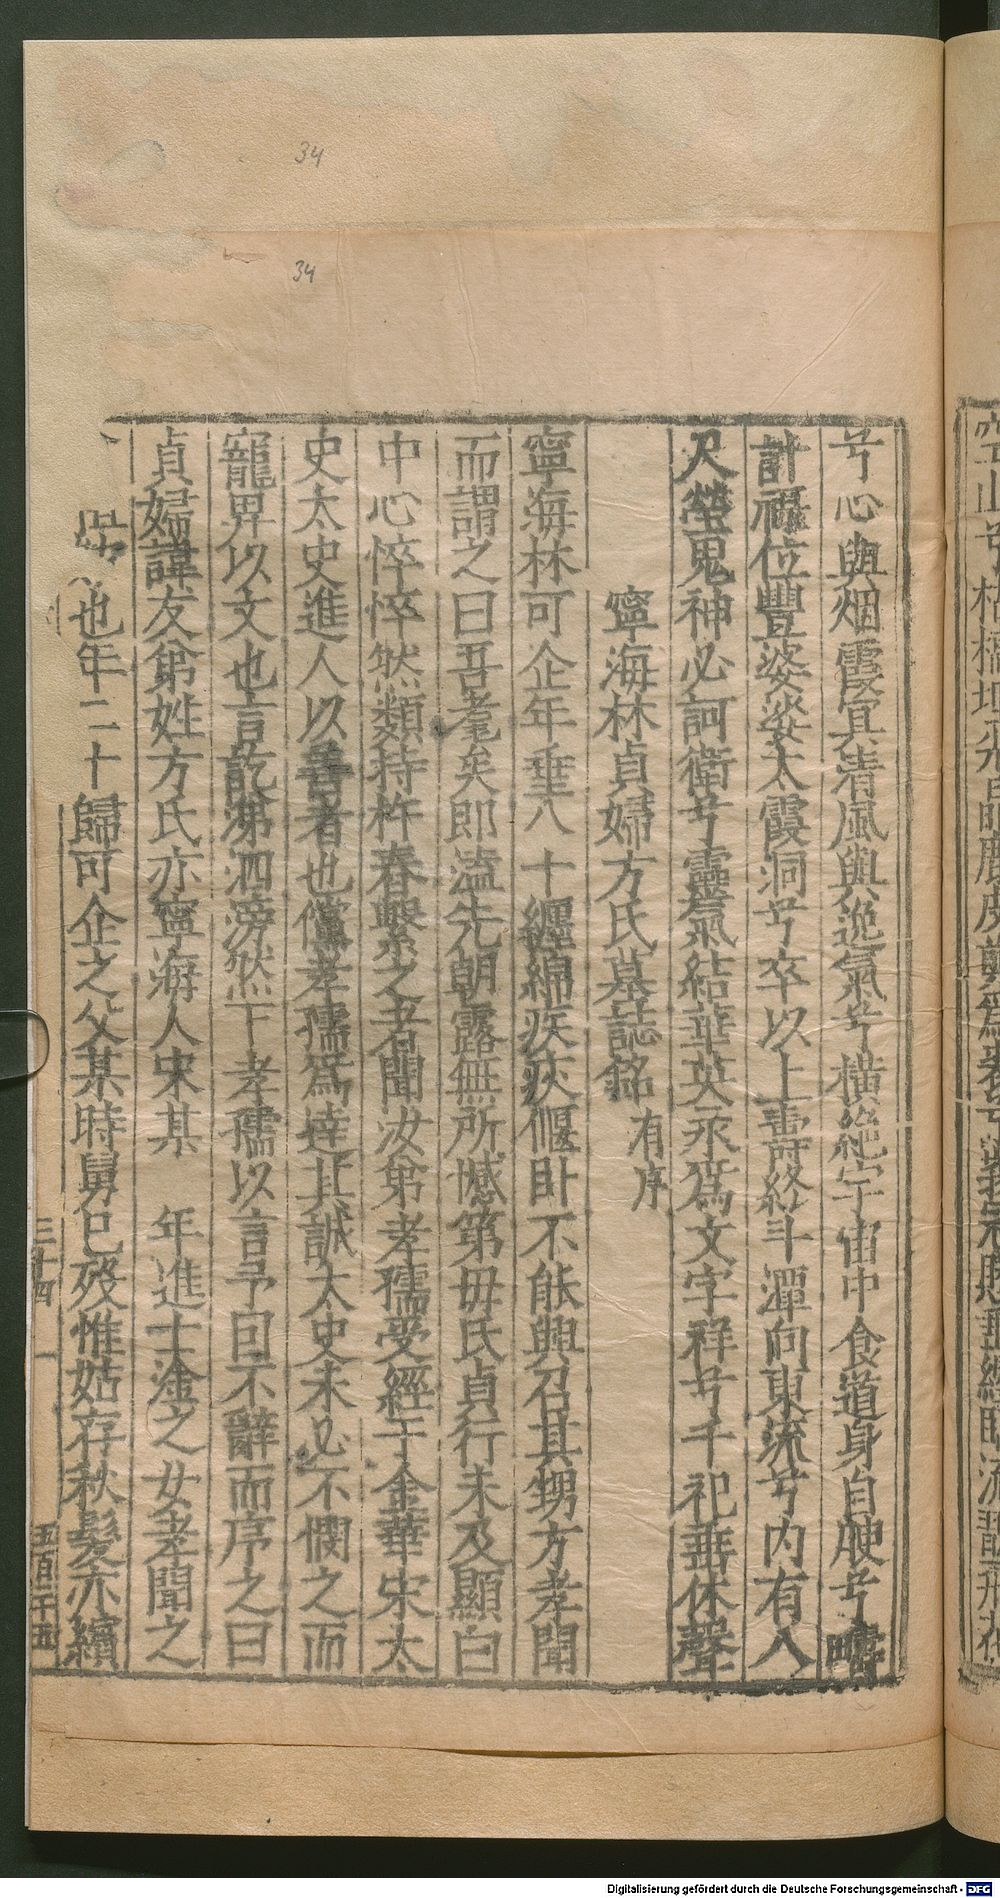 34
34
兮心與烟霞冥清風與逸氣兮橫絶宇宙中食道身自腴兮嘈
計福位豐婆娑太霞洞兮卒以上壽終斗潭向東流兮内有八
尺塋鬼神必訶衛兮靈氣結華英永爲文字祥兮千祀垂休聲
寧海林貞婦方氏墓誌銘有序
寧海林可企年垂八十纏綿疾疢偃卧不能興召其甥方孝聞
而謂之曰吾耄矣即溘先朝露無所憾第毋氏貞行未及顯白
中心悴悴然類持杵舂撃之者聞汝第孝孺受經于金華宋太
史太史進人以善者也儻孝孺爲達其誠太史未必不憫之而
寵畀以文也言訖涕泗滂然下孝孺以言予因不辭而序之曰
貞婦諱友第姓方氏亦寧海人宋某 年進士淦之女孝聞之
也年二十歸可企之父某時舅已歿惟姑存秋髮亦繽
三十四
五百二十五
Digitalisierung gefördert durch die Deutsche Forschungsgemeinschaft - DFG